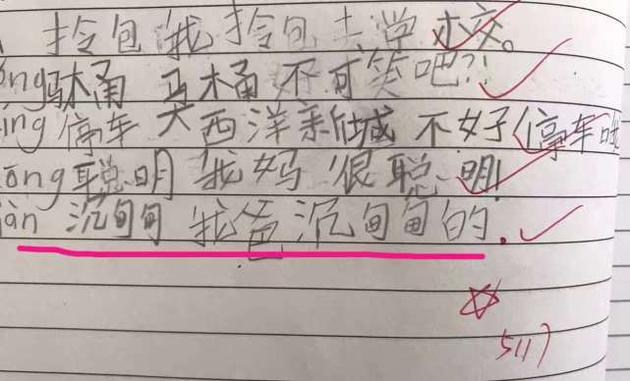 拎包 我拎包上学校。
ǒng 马桶 马桶不可笑吧?!
íng 停车 大西洋新城不好停车啦
ōng 聪明 我妈很聪明!
àn 沉甸甸 我爸沉甸甸的.
5117